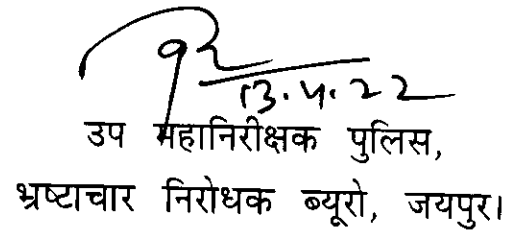 13.4.22
उप महानिरीक्षक पुलिस,
भ्रष्टाचार निरोधक ब्यूरो, जयपुर।